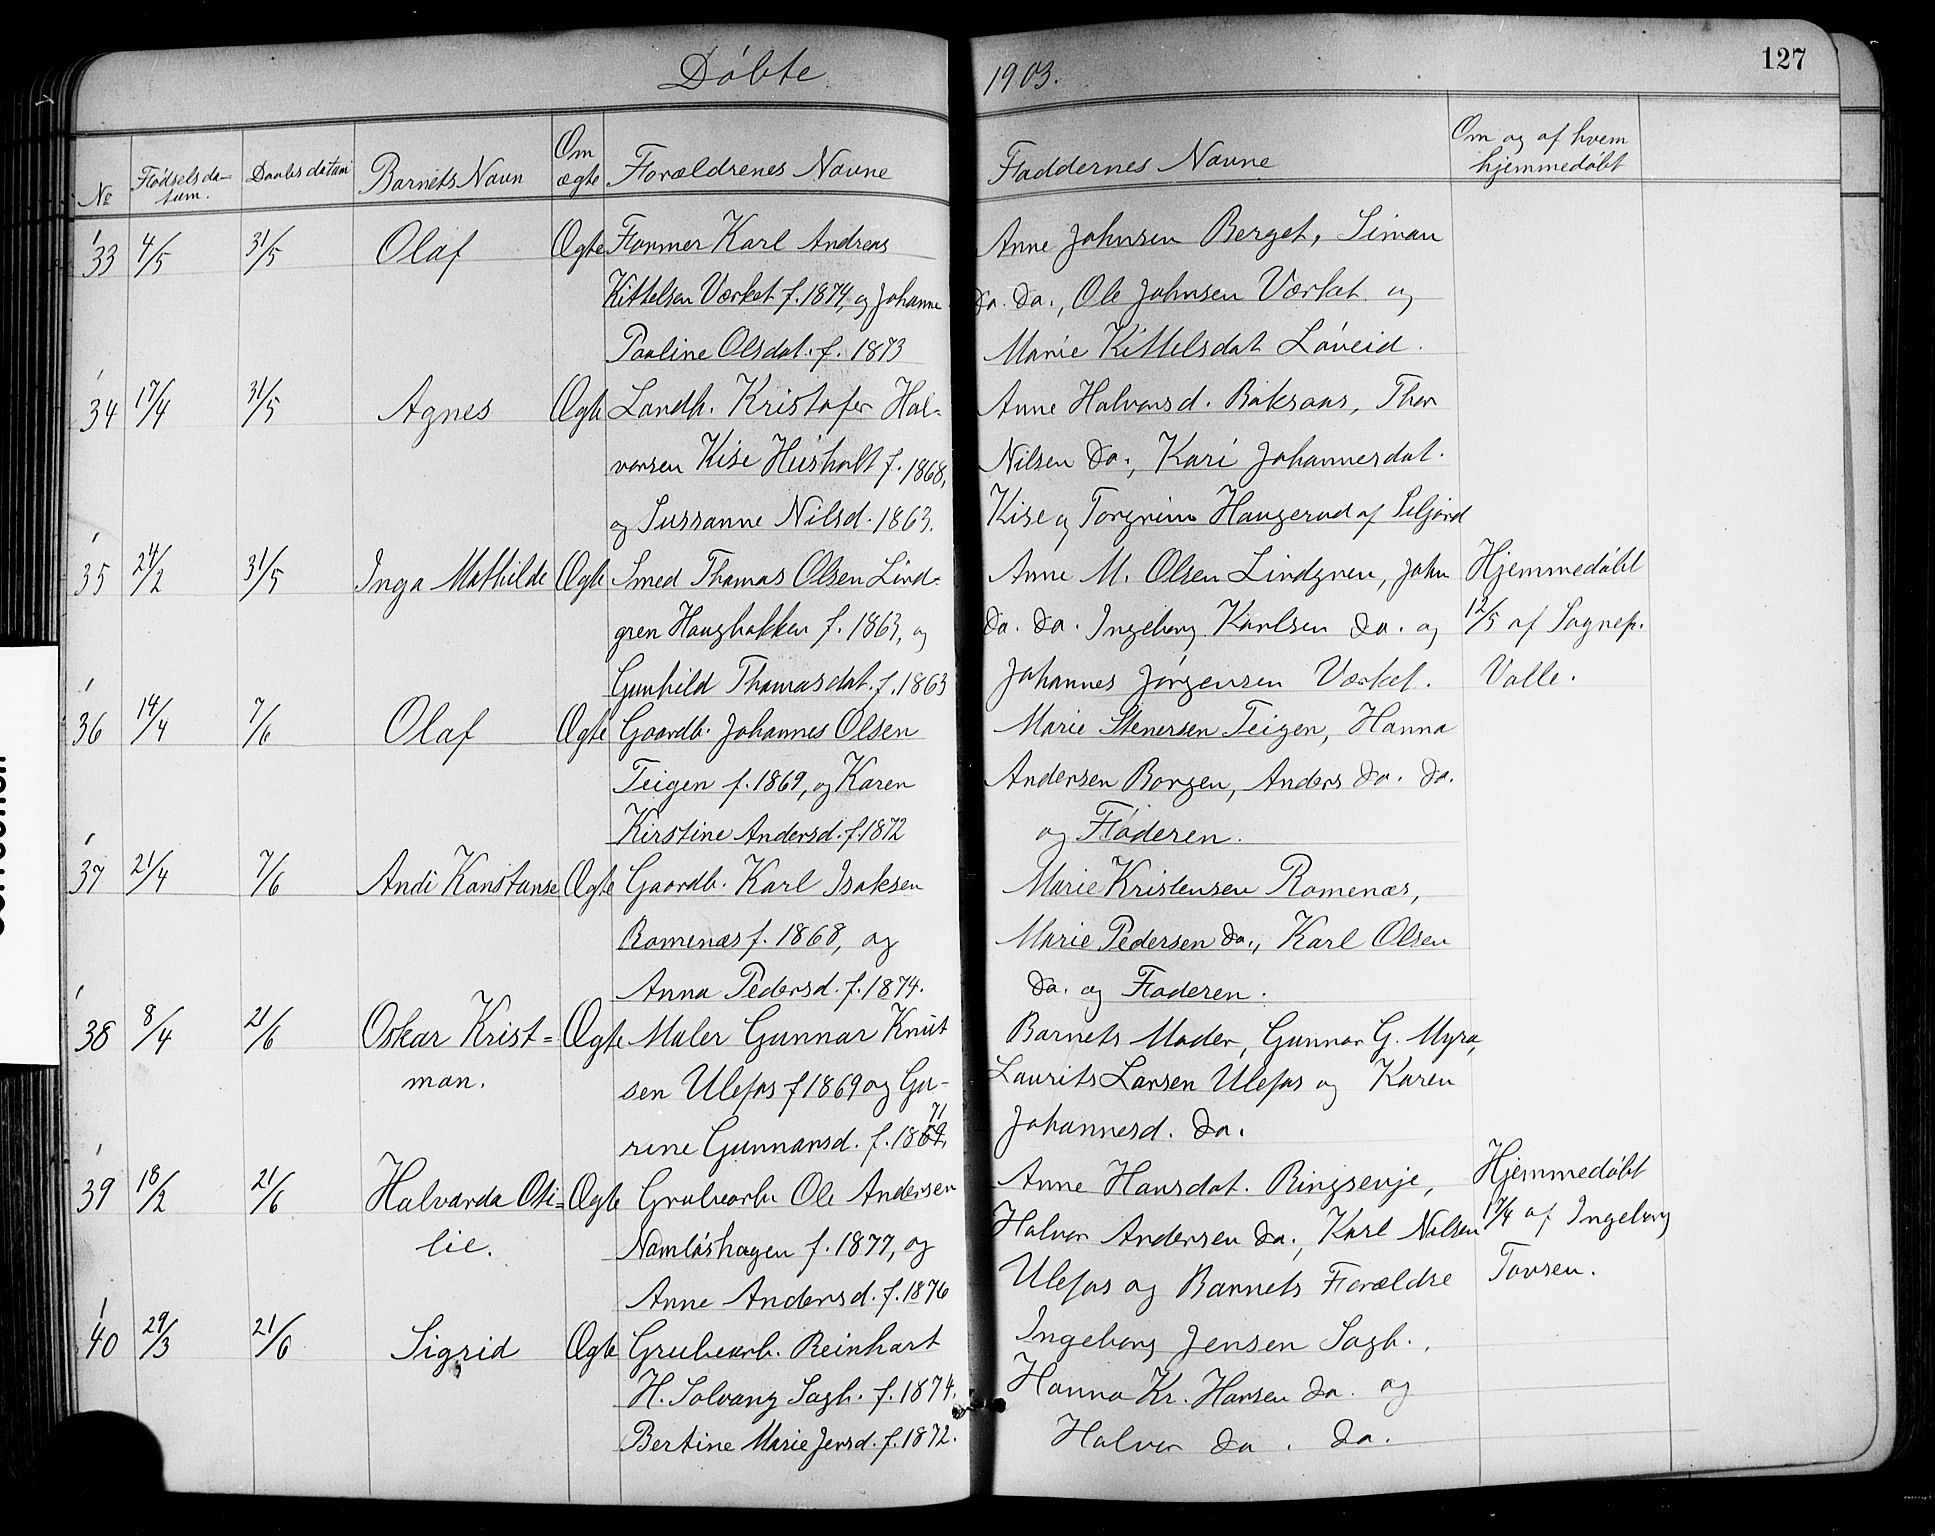 Döbte 1903.
127
No
Födselsda-
tum.
Daabsdatum
Barnets Navn
Om
ægte
Forældrenes Navne
Faddernes Navne
Om og af hvem
hjemmedöbt
33 4/5 31/5 Olaf Ægte Former Karl Andreas Anne Johnsen Berget, Simon
Kittelsen Værket f. 1874, og Johanne do. do., Ole Johnsen Værket og
Pauline Olsdat. f. 1873 Marie Kittelsdat. Löveid.
34 17/4 31/5 Agnes Ægte Landh. Kristofer Hal- Anne Halvorsd. Baksaas, Thor
vorsen Kise Husholt f. 1868, Nilsen do., Kari Johannesdat.
og Sussanne Nilsd. 1863. Kise og Torgrim Haugerud af Siljord
35 24/2 31/5 Inga Mathilde Ægte Smed Thomas Olsen Lind- Anne M. Olsen Lindgren, John Hjemmedöbt
gren Haugbakken f. 1863, og do. do. Ingeborg Karlsen do. og 12/5 af Sognep.
Gunhild Thomasdat. f. 1863 Johannes Jørgensen Værket. Valle.
36 14/4 7/6 Olaf Ægte Gaardb. Johannes Olsen Marie Stenersen Teigen, Hanna
Teigen f. 1869, og Karen Andersen Borgen, Anders do. do.
Kirstine Andersd. f. 1872 og Faderen.
37 21/4 7/6 Andi Konstanse Ægte Gaardb. Karl Isaksen Marie Kristensen Romenæs,
Romenæs f. 1868, og Marie Pedersen do., Karl Olsen
Anna Pedersd. f. 1874. do. og Faderen.
38 8/4 21/6 Oskar Krist= Ægte Maler Gunnar Knut Barnets Moder, Gunnar G. Myra,
man. sen Ulefos f 1869 og Gu- Laurits Larsen Ulefos og Karen
rine Gunnarsd. f. 1869. 71 Johannesd. do.
39 18/2 21/6 Halvarda Oti= Ægte Grubearb. Ole Andersen Anne Hansdat. Ringsevje, Hjemmedöbt
lie. Namlöshagen f. 1877, og Halvor Andersen do., Karl Nilsen 17/4 af Ingeborg
Anne Andersd. f. 1876 Ulefos og Barnets Forældre Tovsen.
40 29/3 21/6 Sigrid Ægte Grubearb. Reinhart Ingeborg Jensen Sagb.,
H. Solvang Sagb. f. 1874. Hanna Kr. Hansen do. og
Bertine Marie Jensd. f. 1872. Halvor do. do.